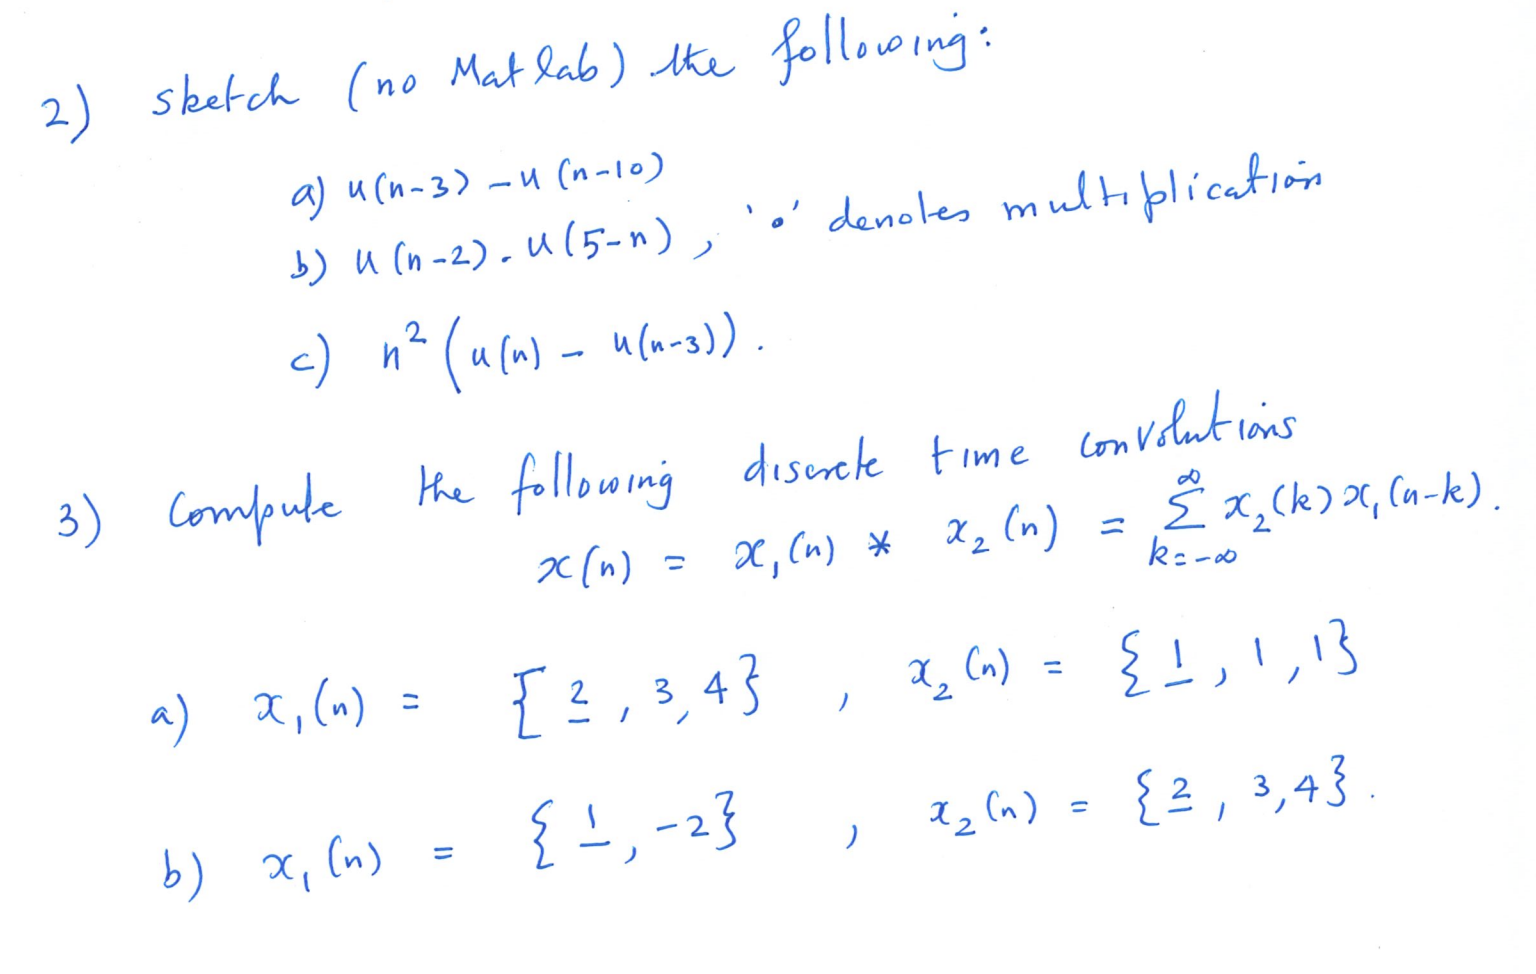 2) sketch (no Matlab) the following:
a) u(n-3) - u(n-10)
b) u(n-2) . u(5-n) , '•' denotes multiplication
c) n² (u(n) - u(n-3)).
3) Compute the following discrete time convolutions
x(n) = x₁(n) * x₂(n) = ∞Σk=-∞ x₂(k) x₁(n-k).
a) x₁(n) = {2̲, 3, 4} , x₂(n) = {1̲, 1, 1}
b) x₁(n) = {1̲, -2} , x₂(n) = {2̲, 3, 4}.